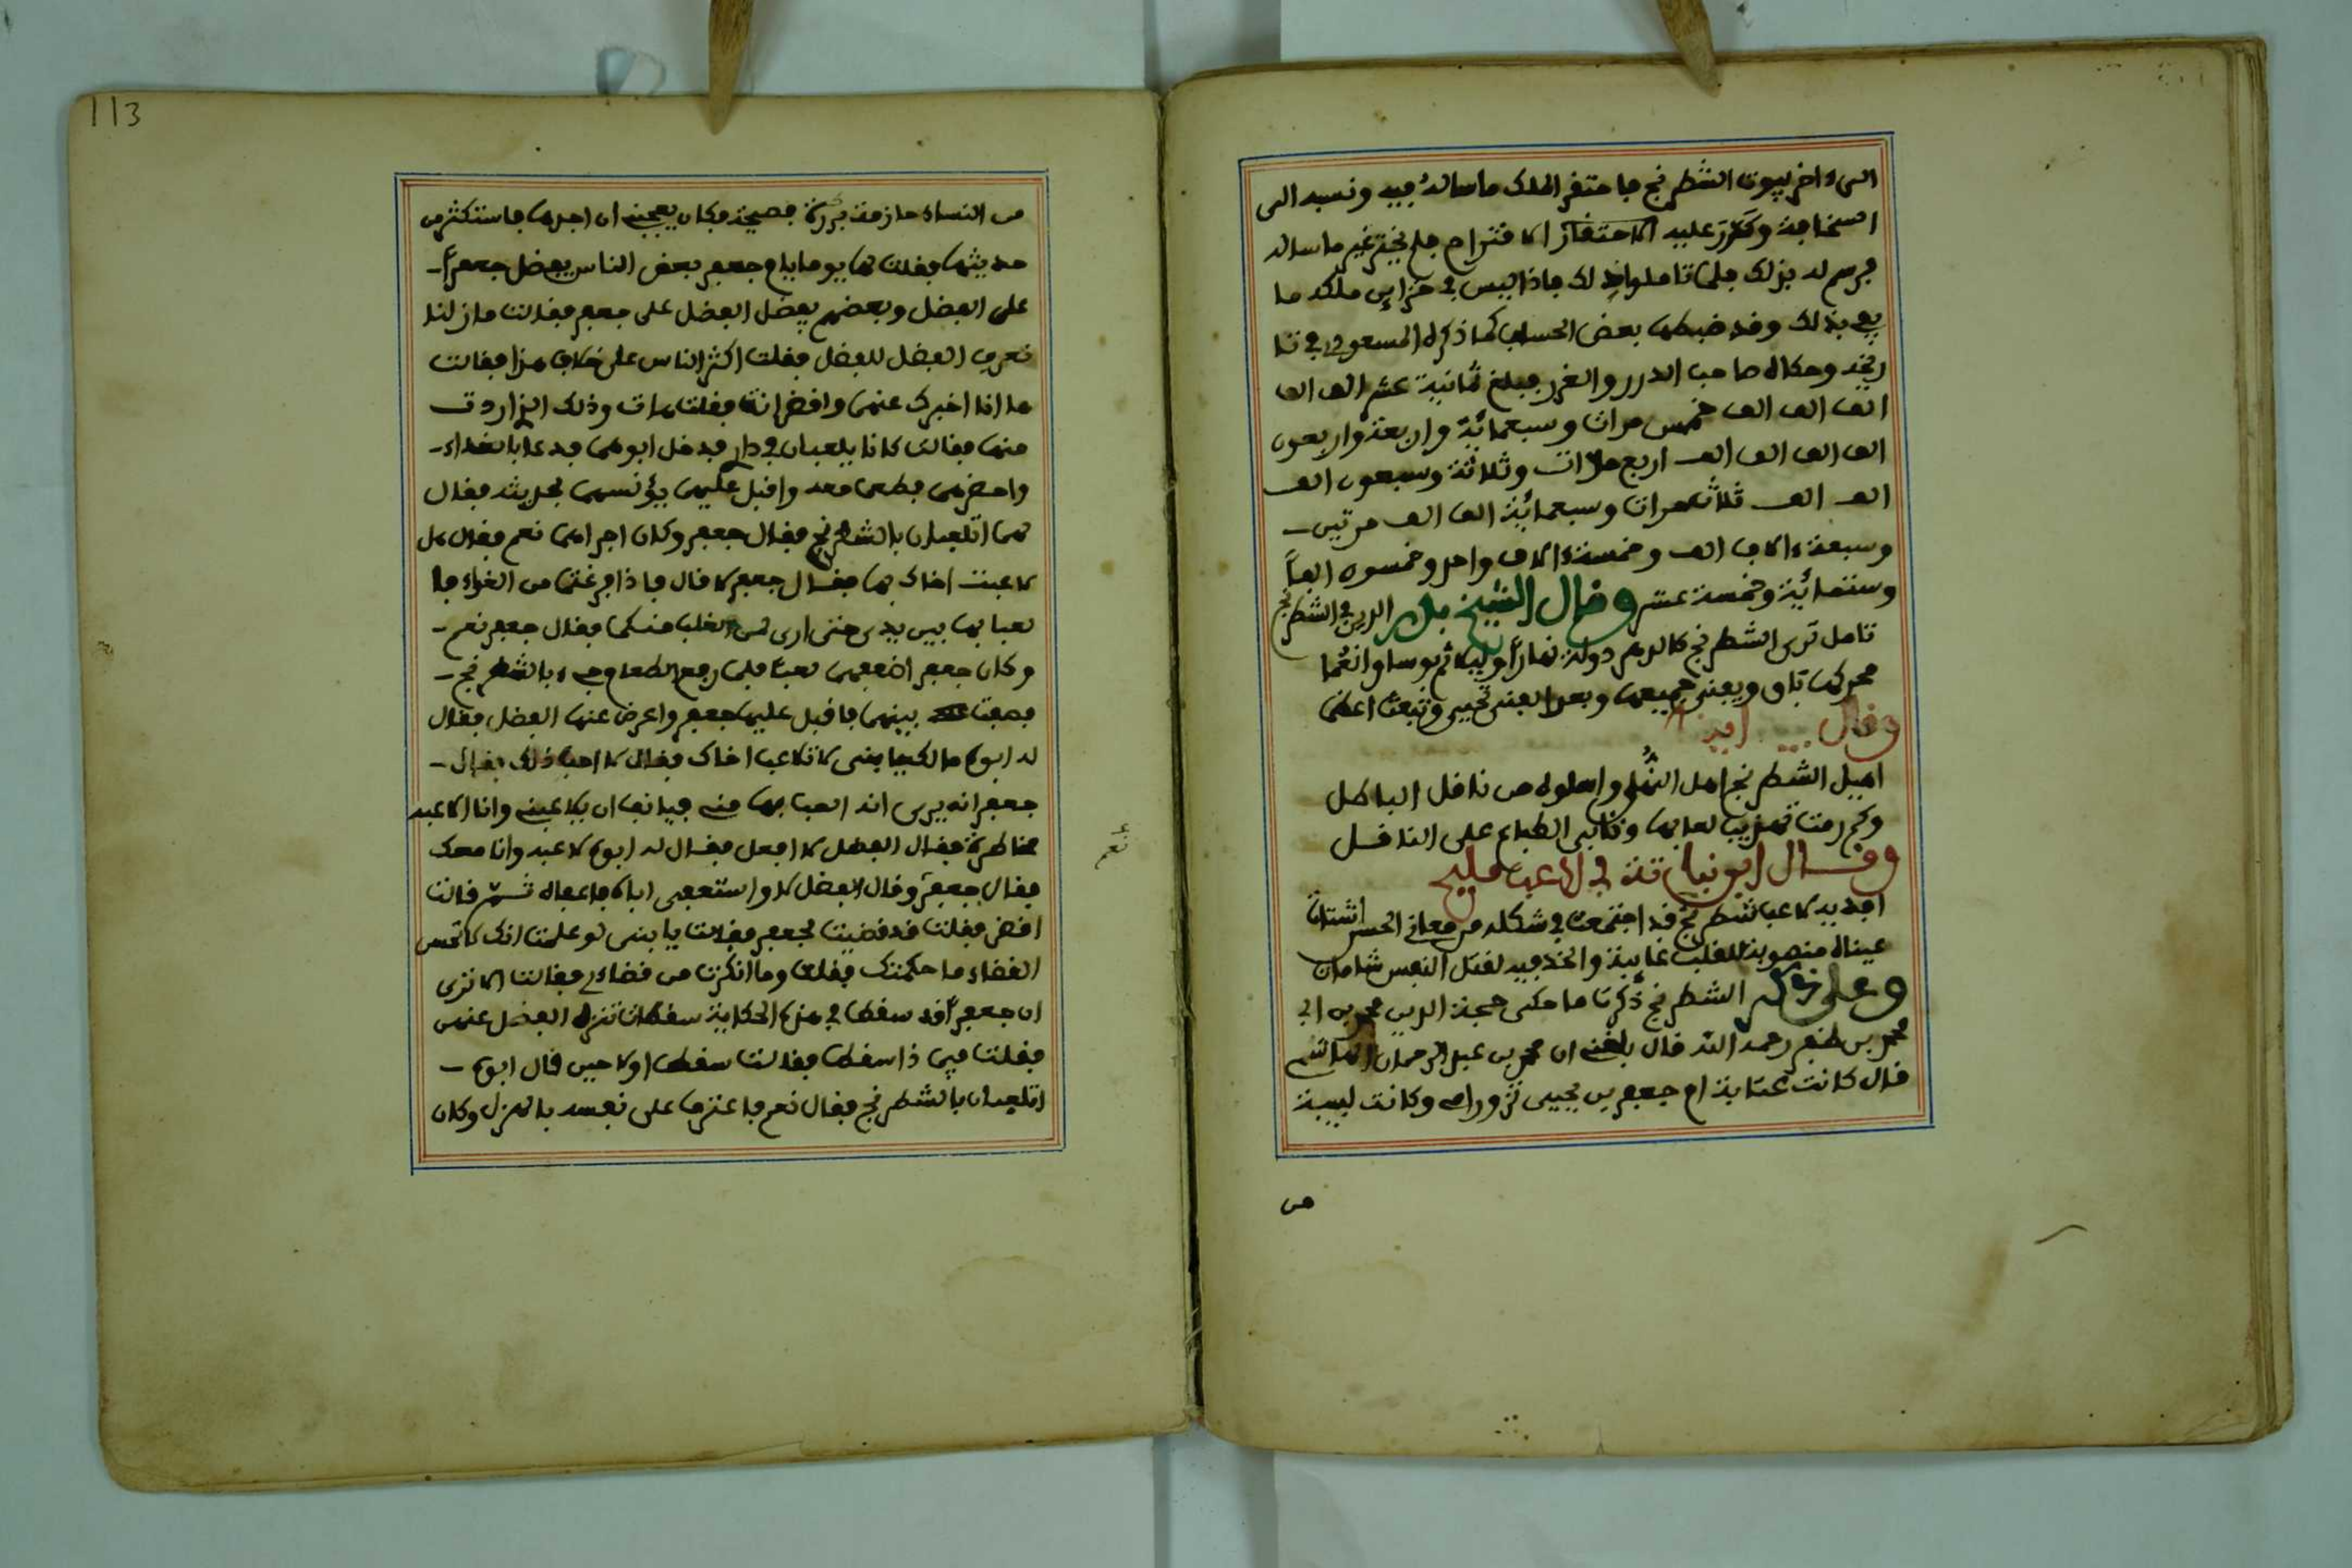 الى ءاخر بيوت الشطرنج فاحتقر الملك ما ساله فيه ونسبه الى
السخافة وكرر عليه الاحتقار الاقتراح فلم يختر غير ما ساله
فرسم له بذلك فلما تاملوا ذلك فاذا ليس في خزاين ملكه ما
يفي بذلك وقد ضبطها بعض الحساب كما ذكره المسعودي في تا
ريخه وحكاه صاحب الدرر والغرر فبلغ ثمانية عشر الف الف
الف الف الف خمس مرات وسبعمائة واربعة واربعون
الف الف الف الف اربع مرات وثلاثة وسبعون الف
الف الف ثلاث مرات وسبعمائة الف الف مرتين
وسبعة ءالاف الف وخمسة ءالاف واحد وخمسون الفاً
وستمائية وخمسة عشر وقال الشيخ بدر الدين في الشطرنج
تامل ترى الشطرنج كالدهر دولة نهاراً وليلا ثم بوسا وانعُما
محركها باق ويفنى جميعها وبعد الفنى تحيى وتبعث اعظما
وقال ايضا
اميل الشطرنج اهل النُّهى واسلوه من ناقل الباطل
وكم رمت تهذيب لعابها وتابى الطباع على الناقل
وقال ابو نباتة في لاعب مليح
افديه لاعب شطرنج قد اجتمعت في شكله من معاني الحسن اشتات
عيناه منصوبة للقلب غالبة والخد فيه لقتل النفس شامات
وعلى ذكر الشطرنج ذكرت ما حكى حجة الدين محمد بن ابي
محمد بن ظفر رحمه الله قال بلغني ان محمد بن عبد الرحمان الهاشمي
قال كانت عتابة ام جعفر بن يحيى تزور امي وكانت لبيبة
من
113
من النساء حازمة برزة فصيحة فكان يعجبني ان اجدها فاستكثر من
حديثها فقلت لها يوما يا ام جعفر بعض الناس يفضل جعفراً
على الفضل وبعضهم يفضل الفضل على جعفر فقالت ما زلنا
نعرف الفضل للفضل فقلت اكثر الناس على خلاف هذا فقالت
ها انا اخبرك عنهما واقض انت فقلت هات وذلك الذي اردت
منها فقالت كانا يلعبان في دار فدخل ابوهما فدعا بالغداء
واحضرهما فطعما معه واقبل عليهما يؤنسهما بحديثه فقال
لهما اتلعبان بالشطرنج فقال جعفر وكان اجراهما نعم فقال هل
لاعبت اخاك بها فقال جعفر لا قال فاذا فرغتما من الغداء فا
لعبا بها بين يدي حتى ارى لمن الغلب منكما فقال جعفر نعم
وكان جعفر افقههما لعبا فلما رفع الطعام جيء بالشطرنج
فصفت بينهما فاقبل عليها جعفر واعرض عنها الفضل فقال
له ابوه مالك يا بني لا تلاعب اخاك فقال لا احب ذلك فقال
جعفر انه يرى انه العب بها مني فيانف ان يلاعبني وانا الاعبه
مخاطرة فقال الفضل لا افعل فقال له ابوه لاعبه وانا معك
فقال جعفر وقال الفضل لا واستعفى اباه فاعفاه ثم قالت
اقض فقلت قد قضيت لجعفر فقالت يا بني لو علمت انك لا تحسن
القضاء ما حكمتك فقلت وما انكرت من قضاءي فقالت الا ترى
ان جعفراً قد سقط في هذه الحكاية سقطات تنزه الفضل عنهن
فقلت فيما ذا سقط فقالت سقط اولا حين قال ابوه
اتلعبان بالشطرنج فقال نعم فاعترف على نفسه بالهزل وكان